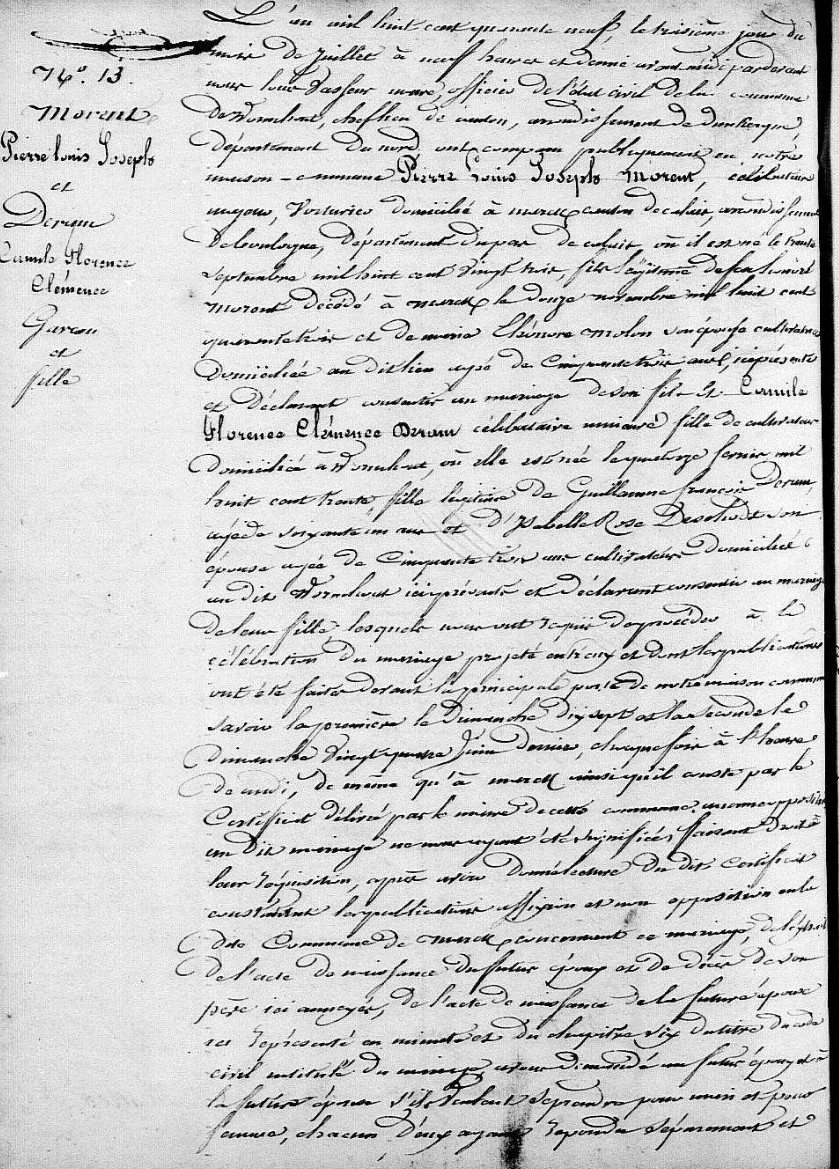 N°. 13.
Morent
Pierre Louis Joseph
et
Deram
Camile Florence
Clémence
Garcon
et
fille
L'an mil huit cent quarante neuf, le troisième jour du
mois de Juillet à neuf heures et demie avant midi pardevant
nous louis Vasseur maire officier de l'état civil de la commune
de Wormhout, chef lieu de canton, arrondissement de dunkerque,
département du nord ont comparu publiquement en notre
maison-commune Pierre Louis Joseph Morent, célibataire
majeur, Voiturier domicilié à Marck canton de calais, arrondissement
de boulogne, département du pas de calais où il est né le trente
Septembre mil huit cent vingt trois, fils légitime de feu
Morent décédé à Marck le douze novembre mil huit cent
quarante trois et de marie Eléonore Molon son épouse cultivatrice
domiciliée au dit lieu agée de Cinquante trois ans, ici présente
et déclarant consentir au mariage de son fils Et Camile
Florence Clémence Deram célibataire mineure fille de cultivateur
domiciliée à Wormhout, où elle est née le quatorze fevrier mil
huit cent trente, fille légitime de Guillaume françois Deram,
agé de soixante un ans et d'Isabelle Rose Deschodt son
épouse agée de Cinquante trois ans cultivateurs domiciliés
au dit Wormhout ici présents et déclarant consentir au mariage
de leur fille lesquels nous ont requis de procéder à la
célébration du mariage projeté entr'eux et dont les publications
ont été faites devant la principale porte de notre maison commune
savoir la première le Dimanche dix sept et la seconde le
dimanche vingt quatre Juin dernier, chaque fois à l'heure
de midi, de même qu'à Marck ainsi qu'il conste par le
Certificat délivré par le maire de cette commune. aucune opposition
au Dit mariage ne nous ayant été signifiée, faisant droit à
leur réquisition, après avoir donné lecture du dit Certificat
constatant les publications affixion et non opposition en la
dite Commune de Marck concernant ce mariage, de l'extrait
de l'acte de naissance du futur époux et de décès de son
père ici annexés, de l'acte de naissance de la future épouse
ici représenté en minute et du chapitre six du titre du code
civil intitulé du mariage, avons demandé au futur époux et à
la future épouse s'ils veulent se prendre pour mari et pour
femme, chacun d'eux ayant repondu séparement et